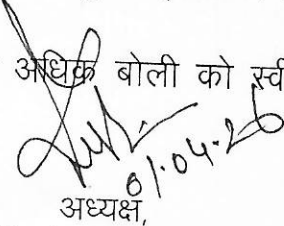 अधिक बोली को
01.04.26
अध्यक्ष,